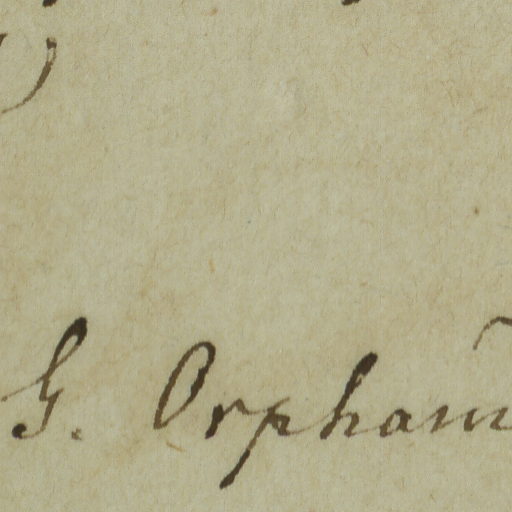 G. Orpham